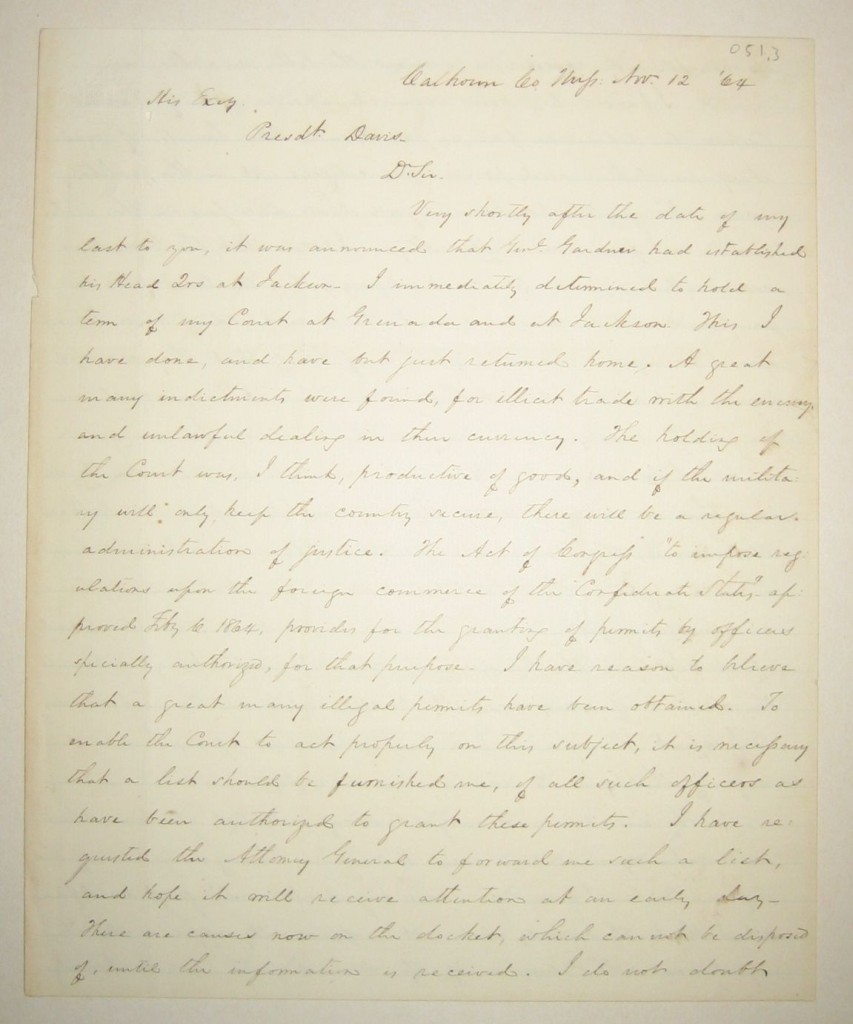 051,3
Calhoun Co Miss. Nov. 12 '64
His Excy.
Presdt. Davis.
Dr. Sir.
Very shortly after the date of my
last to you, it was announced that Genl. Gardner had established
his Head Qrs at Jackson - I immediately determined to hold a
term of my Court at Grenada and at Jackson. This I
have done, and have but just returned home. A great
many indictments were found, for illicit trade with the enemy,
and unlawful dealing in their currency. The holding of
the Court was, I think, productive of good, and if the milita-
ry will only keep the country secure, there will be a regular
administration of justice. The Act of Congress "to impose reg-
ulations upon the foreign commerce of the Confederate States" ap-
proved Feby 6 1864, provides for the granting of permits by officers
specially authorized, for that purpose - I have reason to believe
that a great many illegal permits have been obtained. To
enable the Court to act properly on this subject, it is necessary
that a list should be furnished me, of all such officers as
have been authorized to grant these permits. I have re-
quested the Attorney General to forward me such a list,
and hope it will receive attention at an early day -
There are causes now on the docket, which can not be disposed
of, until the information is received. I do not doubt